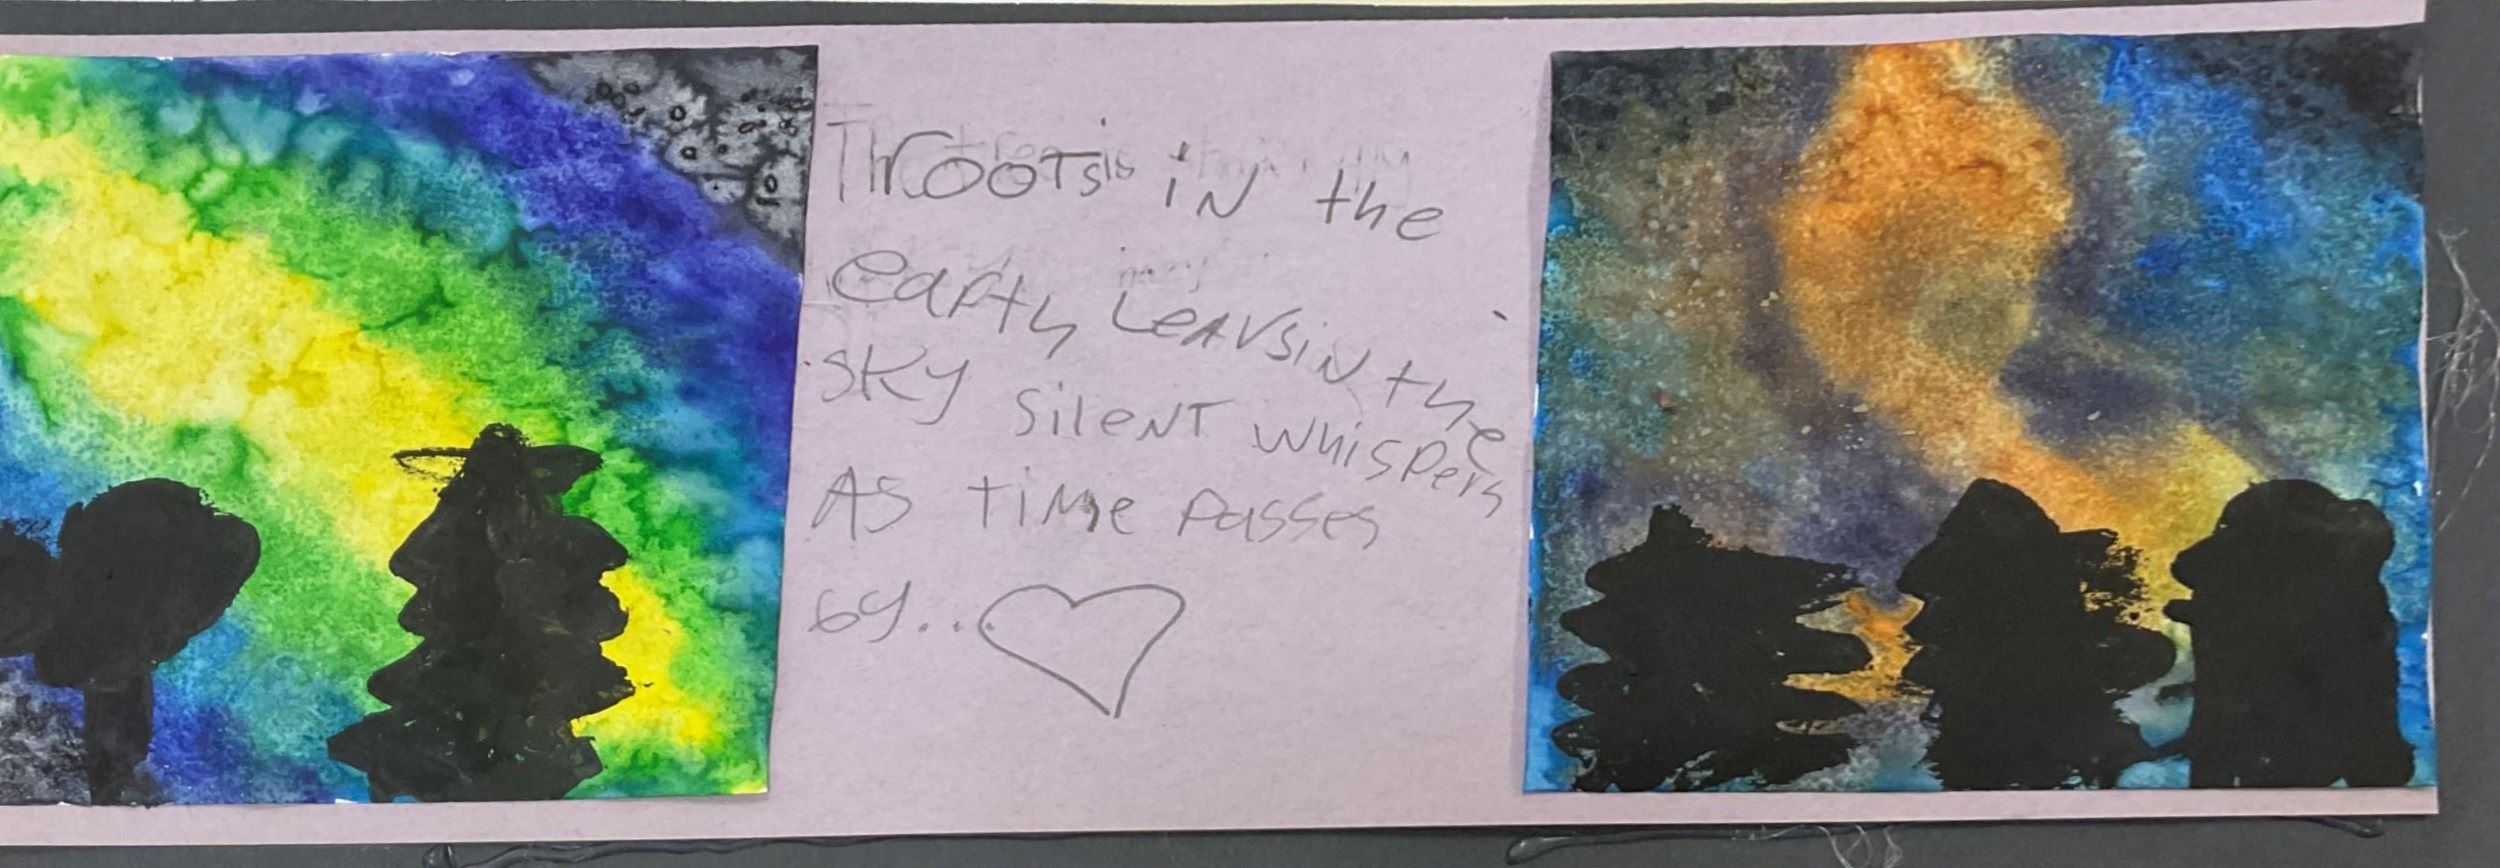 roots in the
earth Leavsin the
sky silent whispers
As time passes
by...